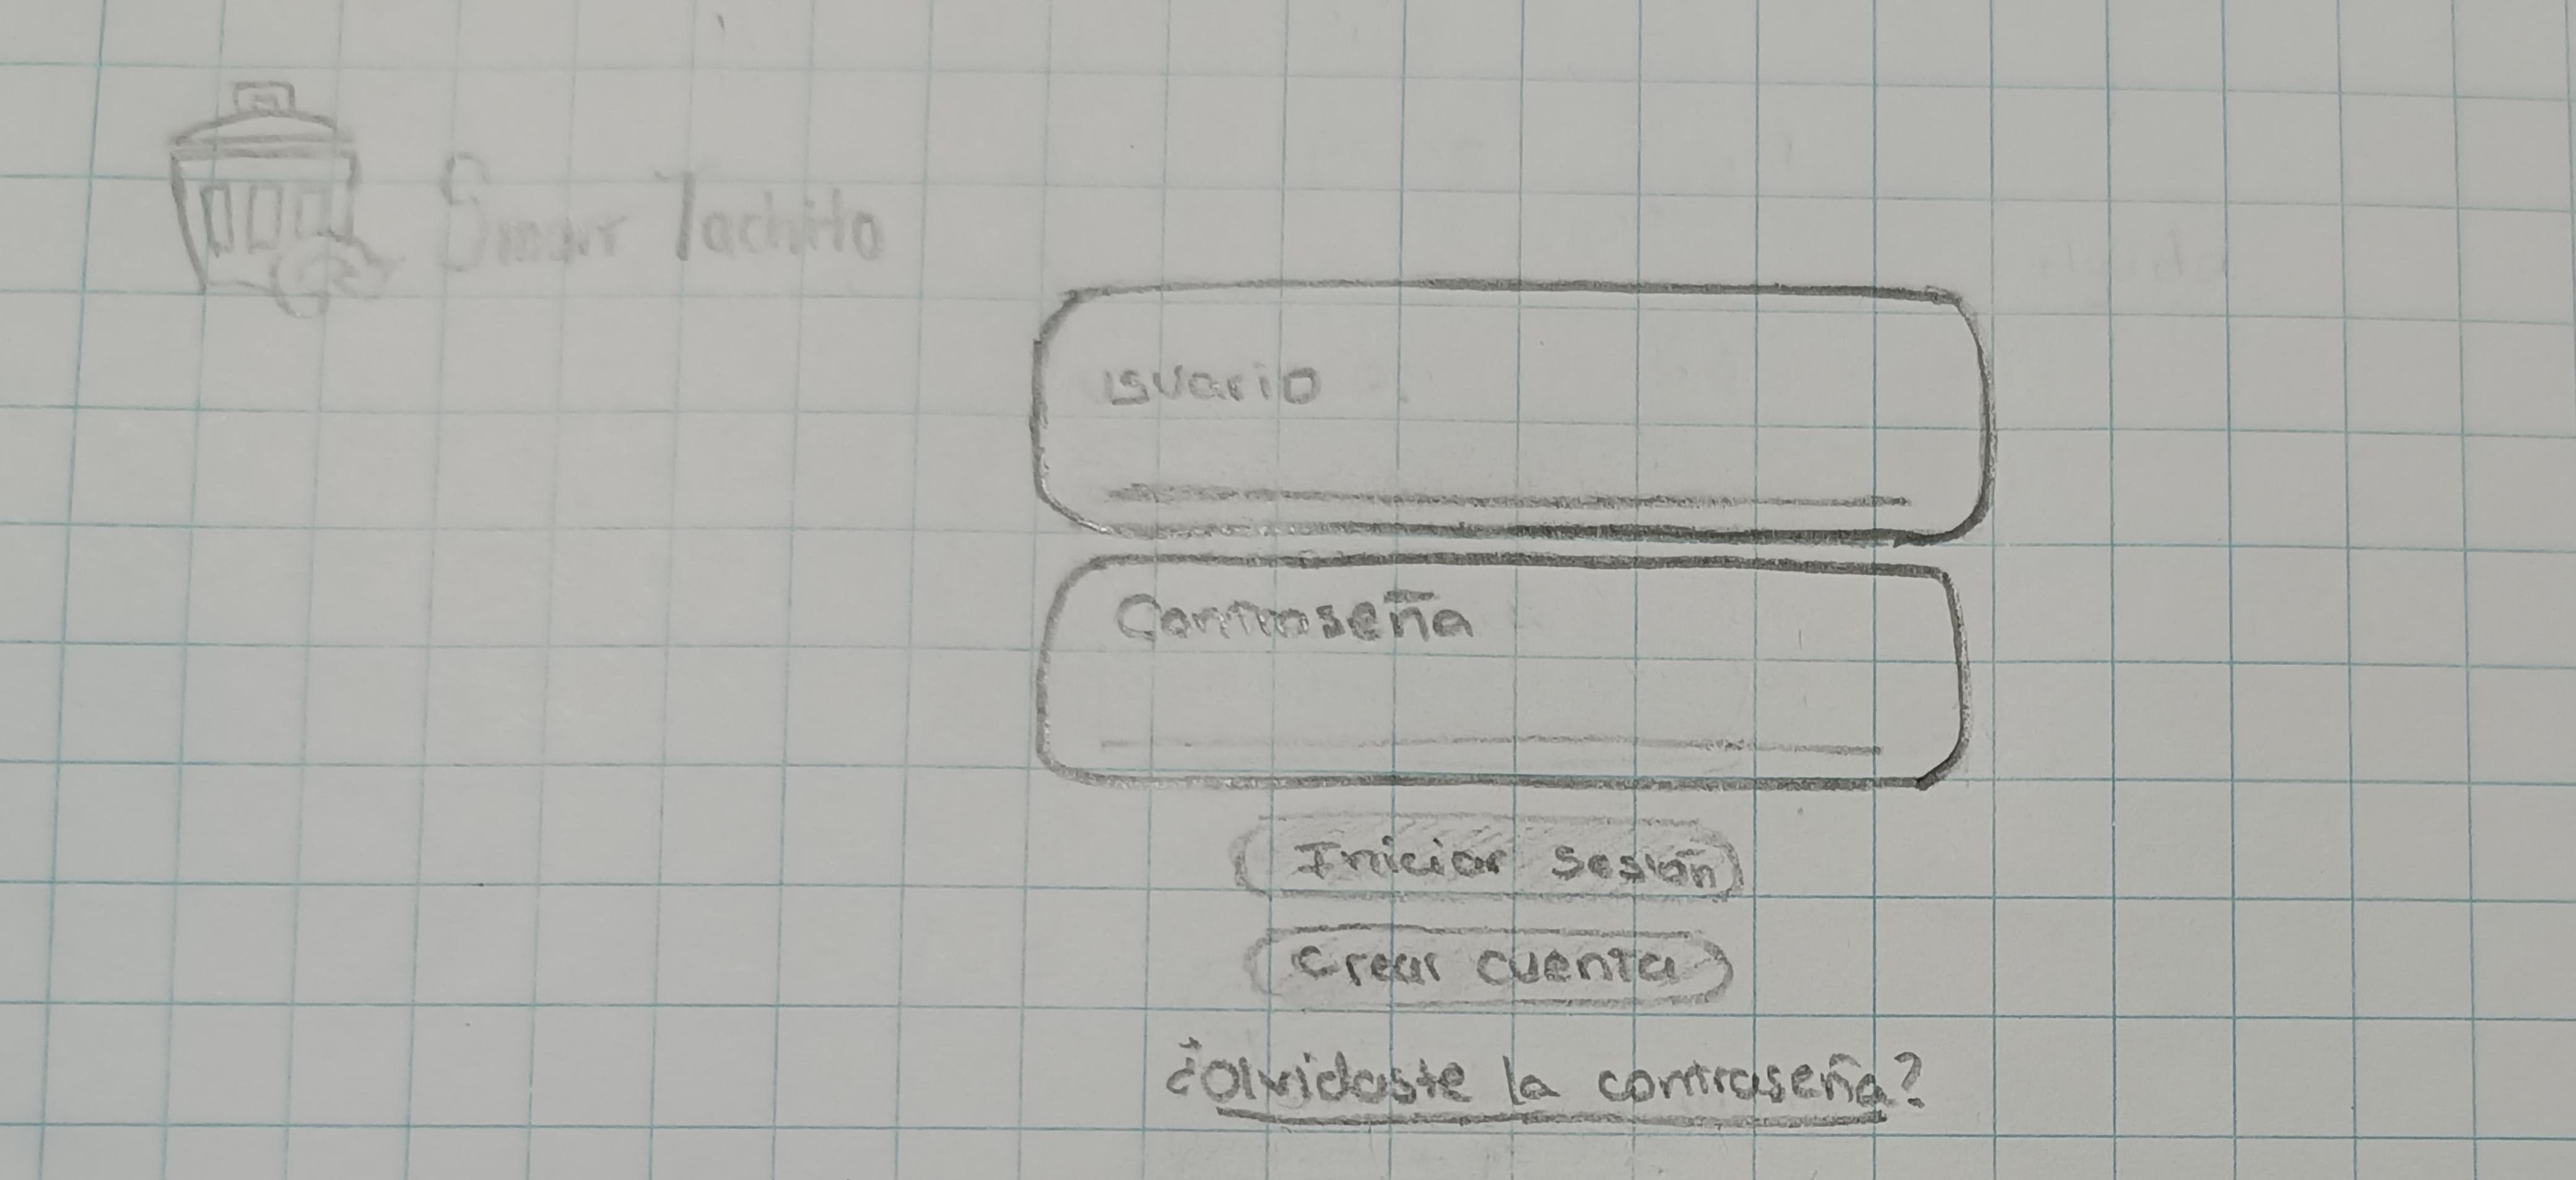 Smart Tachito
usuario
Contraseña
Iniciar sesión
Crear cuenta
¿Olvidaste la contraseña?